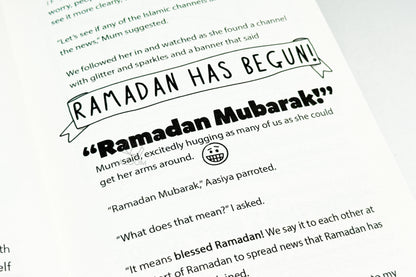 worry, people
see it more clearly.
"Let's see if any of the Islamic channels
the news," Mum suggested.
We followed her in and watched as she found a channel
with glitter and sparkles and a banner that said
RAMADAN HAS BEGUN!
"Ramadan Mubarak!"
Mum said, excitedly hugging as many of us as she could
get her arms around.
"Ramadan Mubarak," Aasiya parroted.
"What does that mean?" I asked.
"It means blessed Ramadan! We say it to each other at
of Ramadan to spread news that Ramadan has
to my
th
elf